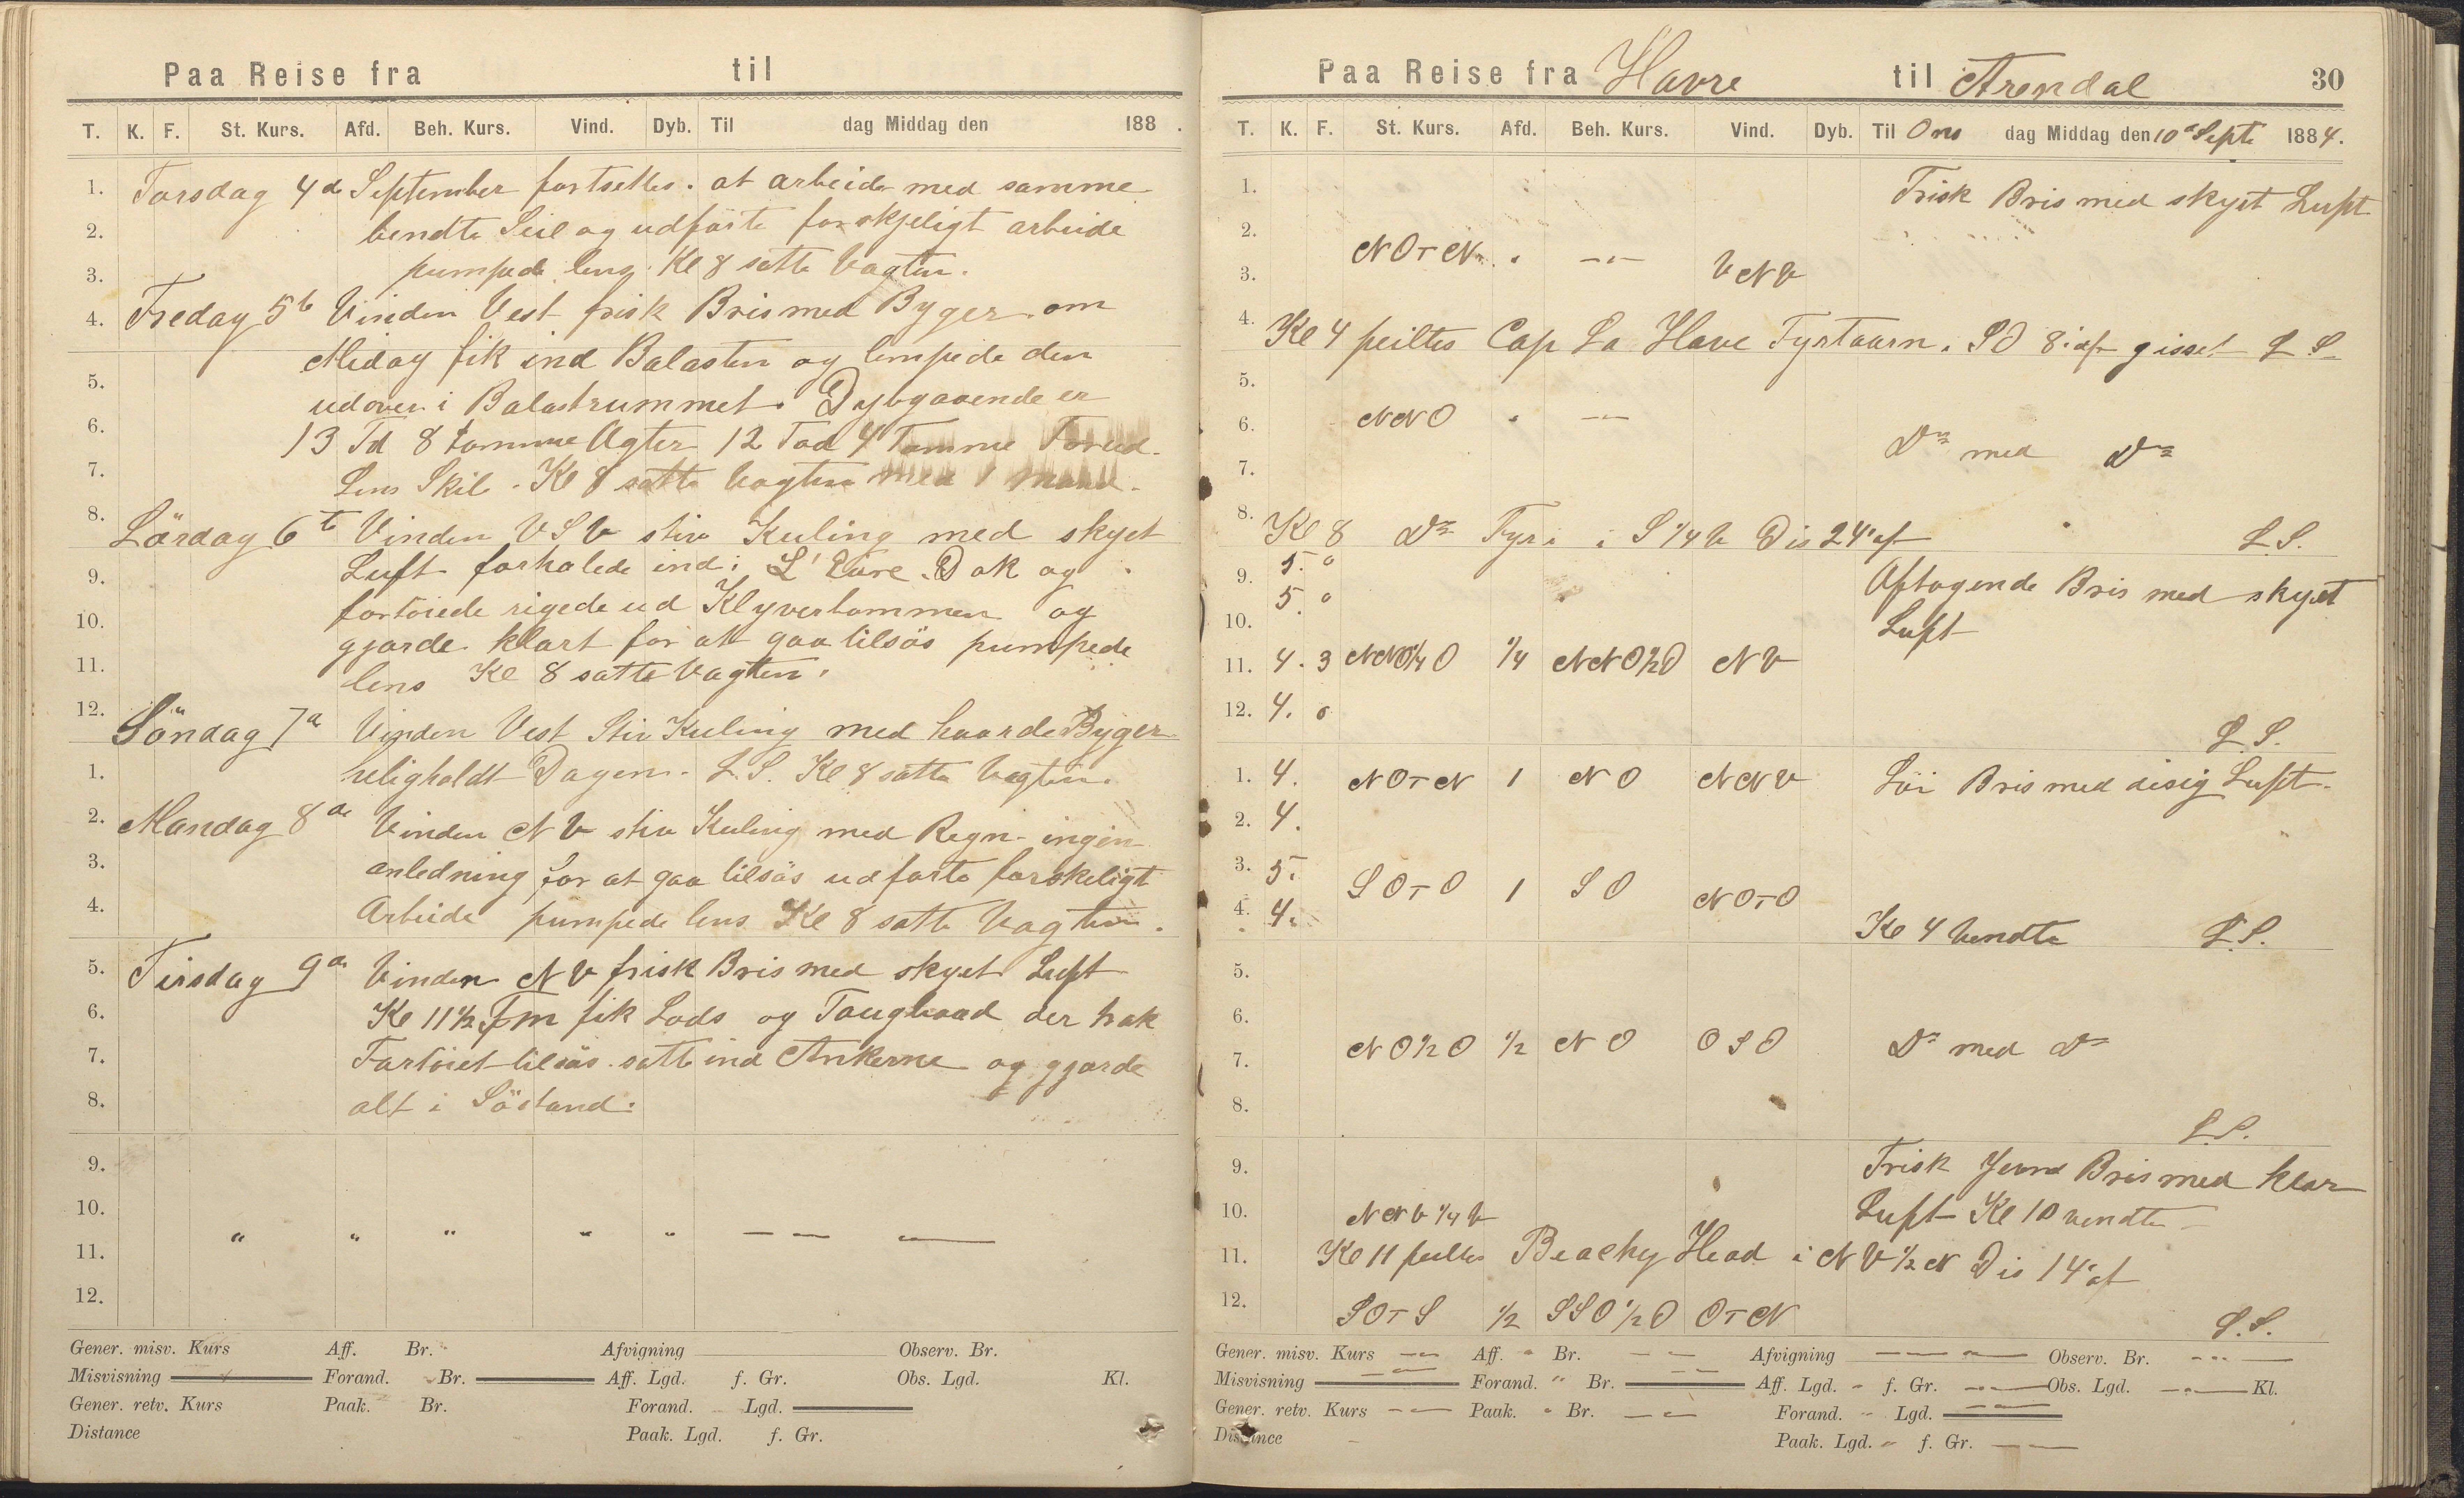 Paa Reise fra til
T. K. F. St. Kurs. Afd. Beh. Kurs. Vind. Dyb. Til dag Middag den 188 .
1. Torsdag 4de September fortsattes at arbeide med samme
2. bendte Seil og udførte forskjeligt arbeide
3. pumpede lens. Kl 8 satte Vagten.
4. Fredag 5te Vinden Vest frisk Bris med Byger om
Midag fik ind Balasten og lempede den
5. udover i Balastrummet. Dybgaaende er
6. 13 Fd 8 tomme Agter 12 Fod 4 Tomme Forud.
7. Lens Skib. Kl 8 satte Vagten med 1 Mand.
8. Lördag 6te Vinden VSV stiv Kuling med skyet
9. Luft forhalede ind i L'Eure Dok og
10. fortöiede rigede ud Klyverbommen og
gjorde klart for at gaa tilsös pumpede
11. lens Kl 8 satte Vagten.
12. Söndag 7de Vinden Vest Stiv Kuling med haarde Byger
1. heligholdt Dagen. L.S. Kl 8 satte Vagten.
2. Mandag 8de Vinden NV stiv Kuling med Regn ingen
3. anledning for at gaa tilsös udførte forskeligt
4. Arbeide pumpede lens Kl 8 satte Vagten.
5. Tirsdag 9de Vinden NV frisk Bris med skyet Luft
6. Kl 11½ Fm fik Lods og Taugbaad der trak
7. Fartöiet tilsös. satte ind Ankerne og gjorde
8. alt i Söstand.
9.
10.
11. " " " " " — — —
12.
Gener. misv. Kurs Aff. Br. Afvigning Observ. Br.
Misvisning Forand. Br. Aff. Lgd. f. Gr. Obs. Lgd. Kl.
Gener. retv. Kurs Paak. Br. Forand. Lgd.
Distance Paak. Lgd. f. Gr.
Paa Reise fra Havre til Arendal 30
T. K. F. St. Kurs. Afd. Beh. Kurs. Vind. Dyb. Til Ons dag Middag den 10de Septe 1884.
1. Frisk Bris med skyet Luft
2.
3. NOTN " — VNV
4. Kl 4 peiltes Cap La Have Fyrtaarn. SO 8' af gisset L S.
5.
6. NNO " —
7. Do med Do
8. Kl 8 Do Fyr i S¼V Dis 24' af L.S.
9. 5. 0 Aftagende Bris med skyet
10. 5. 0 Luft
11. 4. 3 NNO¼O ¼ NNO½O NV
12. 4. 0 L.S.
1. 4. NOTN 1 NO NNV Löi Bris med disig Luft.
2. 4.
3. 5. SOTO 1 SO NOTO
4. 4. Kl 4 vendte L.S.
5.
6.
7. NO½O ½ NO OSO Do med Do
8. L.S.
9. Frisk Jevne Bris med klar
10. NNV¼V Luft Kl 10 vendte
11. Kl 11 peiltes Beachy Head i NV½N Dis 14' af
12. SOTS ½ SSO½O OTN L.S.
Gener. misv. Kurs — Aff. " Br. — Afvigning — Observ. Br. —
Misvisning — Forand. " Br. — Aff. Lgd. " f. Gr. — Obs. Lgd. — Kl.
Gener. retv. Kurs — Paak. " Br. — Forand. " Lgd. —
Distance — Paak. Lgd. " f. Gr. —